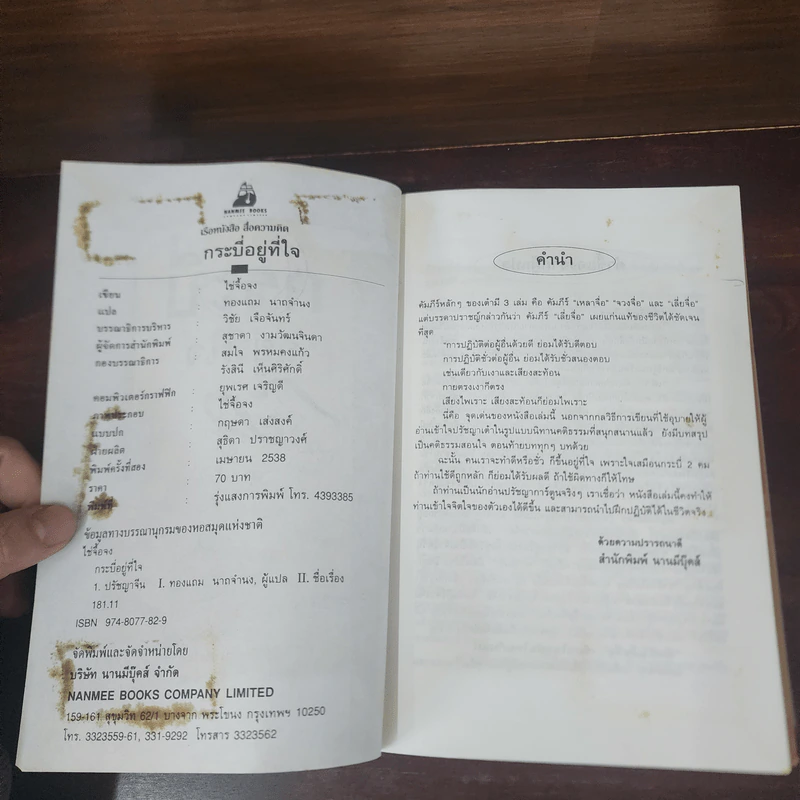 NANMEE BOOKS
COMPANY LIMITED
เรือหนังสือ สื่อความคิด
กระบี่อยู่ที่ใจ
เขียน : ไช่จื้อจง
แปล : ทองแถม นาถจำนง
บรรณาธิการบริหาร : วิชัย เจือจันทร์
ผู้จัดการสำนักพิมพ์ : สุชาดา งามวัฒนจินดา
กองบรรณาธิการ : สมใจ พรหมคงแก้ว
รังสินี เห็นศิริศักดิ์
คอมพิวเตอร์กราฟฟิก : ยุพเรศ เจริญดี
ภาพประกอบ : ไช่จื้อจง
แบบปก : กฤษดา เส่งสงค์
ฝ่ายผลิต : สุธิดา ปราชญาวงศ์
พิมพ์ครั้งที่สอง : เมษายน 2538
ราคา : 70 บาท
พิมพ์ที่ : รุ่งแสงการพิมพ์ โทร. 4393385
ข้อมูลทางบรรณานุกรมของหอสมุดแห่งชาติ
ไช่จื้อจง
กระบี่อยู่ที่ใจ
1. ปรัชญาจีน I. ทองแถม นาถจำนง, ผู้แปล II. ชื่อเรื่อง
181.11
ISBN 974-8077-82-9
จัดพิมพ์และจัดจำหน่ายโดย
บริษัท นานมีบุ๊คส์ จำกัด
NANMEE BOOKS COMPANY LIMITED
159-161 สุขุมวิท 62/1 บางจาก พระโขนง กรุงเทพฯ 10250
โทร. 3323559-61, 331-9292 โทรสาร 3323562
คำนำ
คัมภีร์หลักๆ ของเต๋ามี 3 เล่ม คือ คัมภีร์ "เหลาจื่อ" "จวงจื่อ" และ "เลี่ยจื่อ"
แต่บรรดาปราชญ์กล่าวกันว่า คัมภีร์ "เลี่ยจื่อ" เผยแก่นแท้ของชีวิตได้ชัดเจน
ที่สุด
"การปฏิบัติต่อผู้อื่นด้วยดี ย่อมได้รับดีตอบ
การปฏิบัติชั่วต่อผู้อื่น ย่อมได้รับชั่วสนองตอบ
เช่นเดียวกับเงาและเสียงสะท้อน
กายตรงเงาก็ตรง
เสียงไพเราะ เสียงสะท้อนก็ย่อมไพเราะ
นี่คือ จุดเด่นของหนังสือเล่มนี้ นอกจากกลวิธีการเขียนที่ใช้อุบายให้ผู้
อ่านเข้าใจปรัชญาเต๋าในรูปแบบนิทานคติธรรมที่สนุกสนานแล้ว ยังมีบทสรุป
เป็นคติธรรมสอนใจ ตอนท้ายบททุกๆ บทด้วย
ฉะนั้น คนเราจะทำดีหรือชั่ว ก็ขึ้นอยู่ที่ใจ เพราะใจเสมือนกระบี่ 2 คม
ถ้าท่านใช้ดีถูกหลัก ก็ย่อมได้รับผลดี ถ้าใช้ผิดทางก็ให้โทษ
ถ้าท่านเป็นนักอ่านปรัชญาการ์ตูนจริงๆ เราเชื่อว่า หนังสือเล่มนี้คงทำให้
ท่านเข้าใจจิตใจของตัวเองได้ดีขึ้น และสามารถนำไปฝึกปฏิบัติได้ในชีวิตจริง
ด้วยความปรารถนาดี
สำนักพิมพ์ นานมีบุ๊คส์